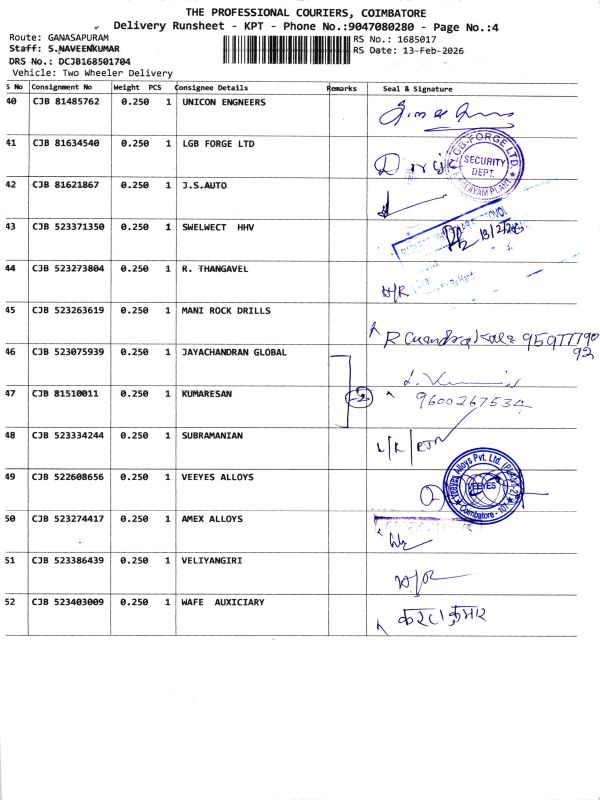 THE PROFESSIONAL COURIERS, COIMBATORE
Delivery Runsheet - KPT - Phone No.:9047080280 - Page No.:4
Route: GANASAPURAM
RS No.: 1685017
Staff: S.NAVEENKUMAR
RS Date: 13-Feb-2026
DRS No.: DCJB168501704
Vehicle: Two Wheeler Delivery
S No Consignment No Weight PCS Consignee Details Remarks Seal & Signature
40 CJB 81485762 0.250 1 UNICON ENGNEERS
41 CJB 81634540 0.250 1 LGB FORGE LTD
LGB-FORGE LTD.
SECURITY
DEPT.
PLANT
42 CJB 81621867 0.250 1 J.S.AUTO
43 CJB 523371350 0.250 1 SWELWECT HHV
44 CJB 523273804 0.250 1 R. THANGAVEL
45 CJB 523263619 0.250 1 MANI ROCK DRILLS
R Chandra kala
46 CJB 523075939 0.250 1 JAYACHANDRAN GLOBAL
47 CJB 81510011 0.250 1 KUMARESAN
2
9600267534
48 CJB 523334244 0.250 1 SUBRAMANIAN
49 CJB 522608656 0.250 1 VEEYES ALLOYS
Veeyes Alloys Pvt. Ltd.
VEEYES
Coimbatore - 107
50 CJB 523274417 0.250 1 AMEX ALLOYS
51 CJB 523386439 0.250 1 VELIYANGIRI
52 CJB 523403009 0.250 1 WAFE AUXICIARY